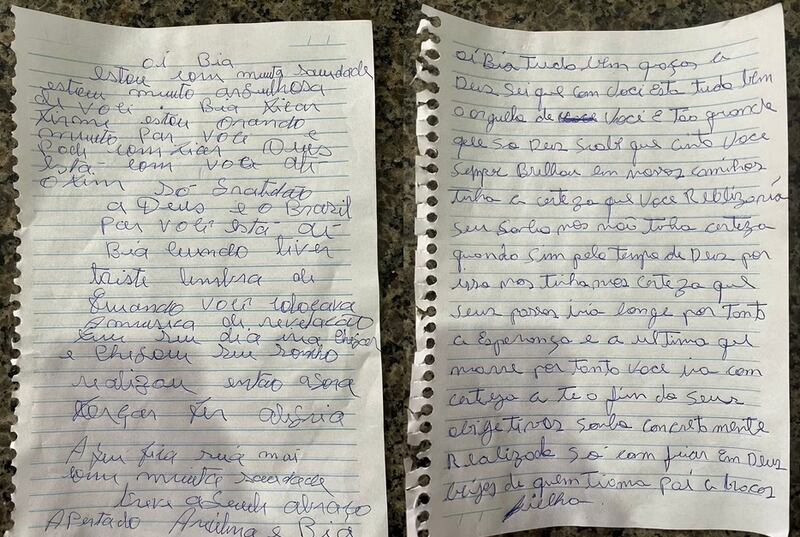 oi Bia
estou com muita saudade
estou muito orgulhosa
di voli. Bia ficar
firmi estou orando
muito par voli e
Podi com ficar Deus
está com voli ati
o fim só gratidão
a Deus e o Brazil
Par voli está ai
Bia quando tiver
triste lembra di
quando voli colocava
a musica di revelação
seu dia ina chegar
e chegou seu sonho
realizou então agora
força fer alegria
A qui fica sua mai
com muita saudade
abraço
Apertado e Bia
oi Bia Tudo bem graças a
Deus Sei que com você Esta tudo bem
o orgulho de você E Tão grande
que So Deus Sabe que cinto Você
Sepper Brilhou em novos caminhos
tinha a certeza que Você Reblizaria
seu Sonho nos não tinha certeza
quando Sim pelo tempo de Deus por
issa nos tinha mos certeza que
seus passos iria longe por Tonto
a Esperança e a ultima que
morre por tonto Você ira com
certeza a te o fim do Seus
objetivos Sonho concretmente
Realizado Só com fiar Em Deus
beijos de quem ti ama Pai a broços
filha.